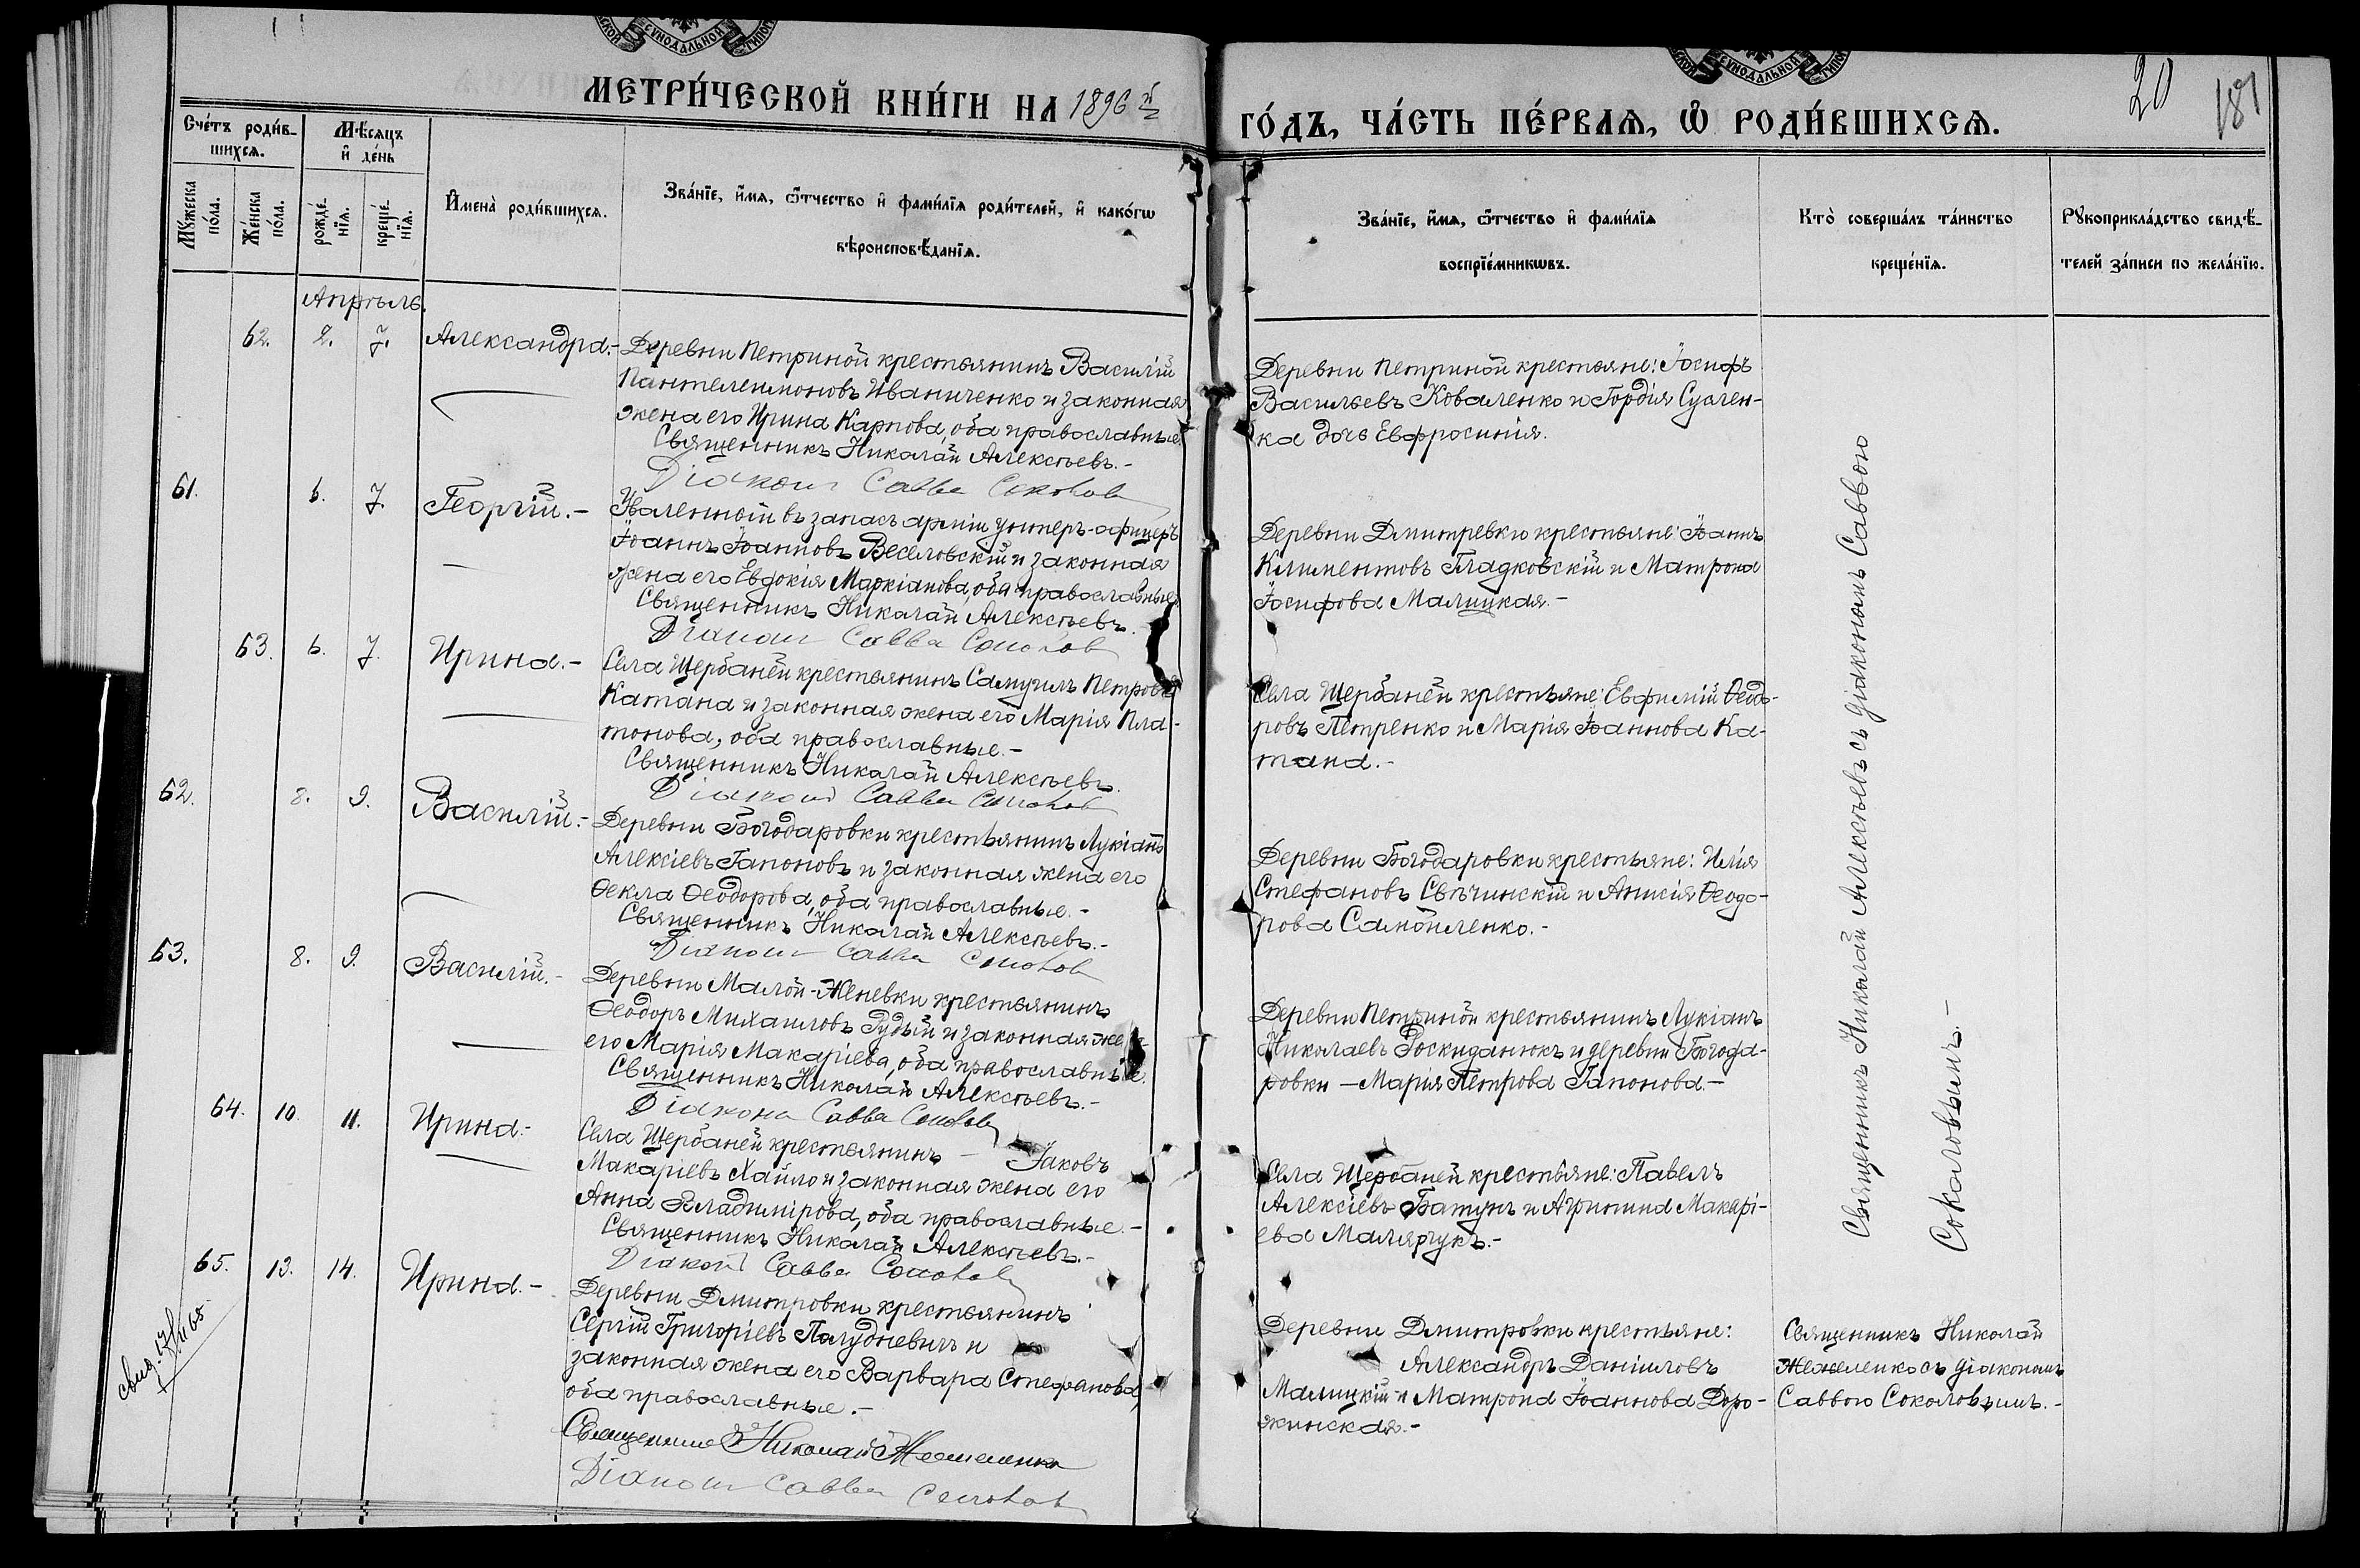 СѴНОДАЛЬНОЙ
СѴНОДАЛЬНОЙ
МЕТРИ́ЧЕСКОЙ КНИ́ГИ НА 1896 й
ГО́ДЪ, ЧА́СТЬ ПЕ́РВАѦ, Ѿ РОДИ́ВШИХСѦ.
20
181
Сче́тъ роди́в-
шихсѧ.
Мѣ́сѧцъ
и҆ де́нь
Мꙋ́жеска
по́ла.
Же́нска
по́ла.
рожде́-
нїѧ.
креще́-
нїѧ.
И҆мена̀ роди́вшихсѧ.
Зва́нїе, и҆́мѧ, ѻ҆́тчество и҆ фами́лїѧ роди́телей, и҆ како́гѡ
вѣроисповѣ́данїѧ.
Зва́нїе, и҆́мѧ, ѻ҆́тчество и҆ фами́лїѧ
воспрїе́мникѡвъ.
Кто̀ соверша́лъ та́инство
креще́нїѧ.
Рꙋкоприкла́дство свидѣ́-
телей за́писи по жела́нїю.
Апрѣль.
62. 2. 7. Александра.-
Деревни Петриной крестьянинъ Василій
Пантелеимоновъ Иваниченко и законная
жена его Ирина Карпова, оба православные.
Священникъ Николай Алексѣевъ.-
Діаконъ Савва Соколов
Деревни Петриной крестьяне: Іосифъ
Васильевъ Коваленко и Гордія Суален-
ка дочь Евфросинія.
61. 6. 7. Георгій.-
Уволенный въ запасъ арміи унтеръ-офицеръ
Іоаннъ Іоанновъ Веселовскій и законная
жена его Евдокія Маркіанова, оба православные.
Священникъ Николай Алексѣевъ.
Діаконъ Савва Соколов
Деревни Дмитревки крестьяне: Іоаннъ
Климентовъ Гладковскій и Матрона
Іосифова Малицкая.-
63. 6. 7. Ирина.-
Села Щербаней крестьянинъ Самуилъ Петровъ
Катана и законная жена его Марія Пла-
тонова, оба православные.-
Священникъ Николай Алексѣевъ.
Діаконъ Савва Соколов
Села Щербаней крестьяне: Евфимій Ѳеодо-
ровъ Петренко и Марія Іоаннова Ка-
тана.-
62. 8. 9. Василій.-
Деревни Богодаровки крестьянинъ Лукіанъ
Алексіевъ Гапоновъ и законная жена его
Ѳекла Ѳеодорова, оба православные.-
Священникъ Николай Алексѣевъ.-
Діаконъ Савва Соколов
Деревни Богодаровки крестьяне: Илія
Стефановъ Свѣчинскій и Анисія Ѳеодо-
рова Самойленко.-
63. 8. 9. Василій.-
Деревни Малой-Женевки крестьянинъ
Ѳеодоръ Михаиловъ Рудый и законная жена
его Марія Макаріева, оба православные.
Священникъ Николай Алексѣевъ.-
Діаконъ Савва Соколов
Деревни Петриной крестьянинъ Лукіанъ
Николаевъ Роскиданюкъ и деревни Богода-
ровки - Марія Петрова Гапонова.-
64. 10. 11. Ирина.-
Села Щербаней крестьянинъ - Іаковъ
Макаріевъ Хайло и законная жена его
Анна Владимірова, оба православные.-
Священникъ Николай Алексѣевъ.-
Діаконъ Савва Соколов
Села Щербаней крестьяне: Павелъ
Алексіевъ Батунъ и Агрипина Макарі-
ева Малярчукъ.-
65. 13. 14. Ирина.-
Деревни Дмитровки крестьянинъ
Сергій Григоріевъ Полудневичъ и
законная жена его Варвара Стефанова,
оба православные.-
Священникъ Николай Жемеленко
Діаконъ Савва Соколов
Деревни Дмитровки крестьяне:
Александръ Даніиловъ
Малицкій и Матрона Іоаннова Доро-
жинская.-
Священникъ Николай Алексѣевъ съ діакономъ Саввою
Соколовымъ.-
Священникъ Николай
Жемеленко съ діакономъ
Саввою Соколовымъ.-